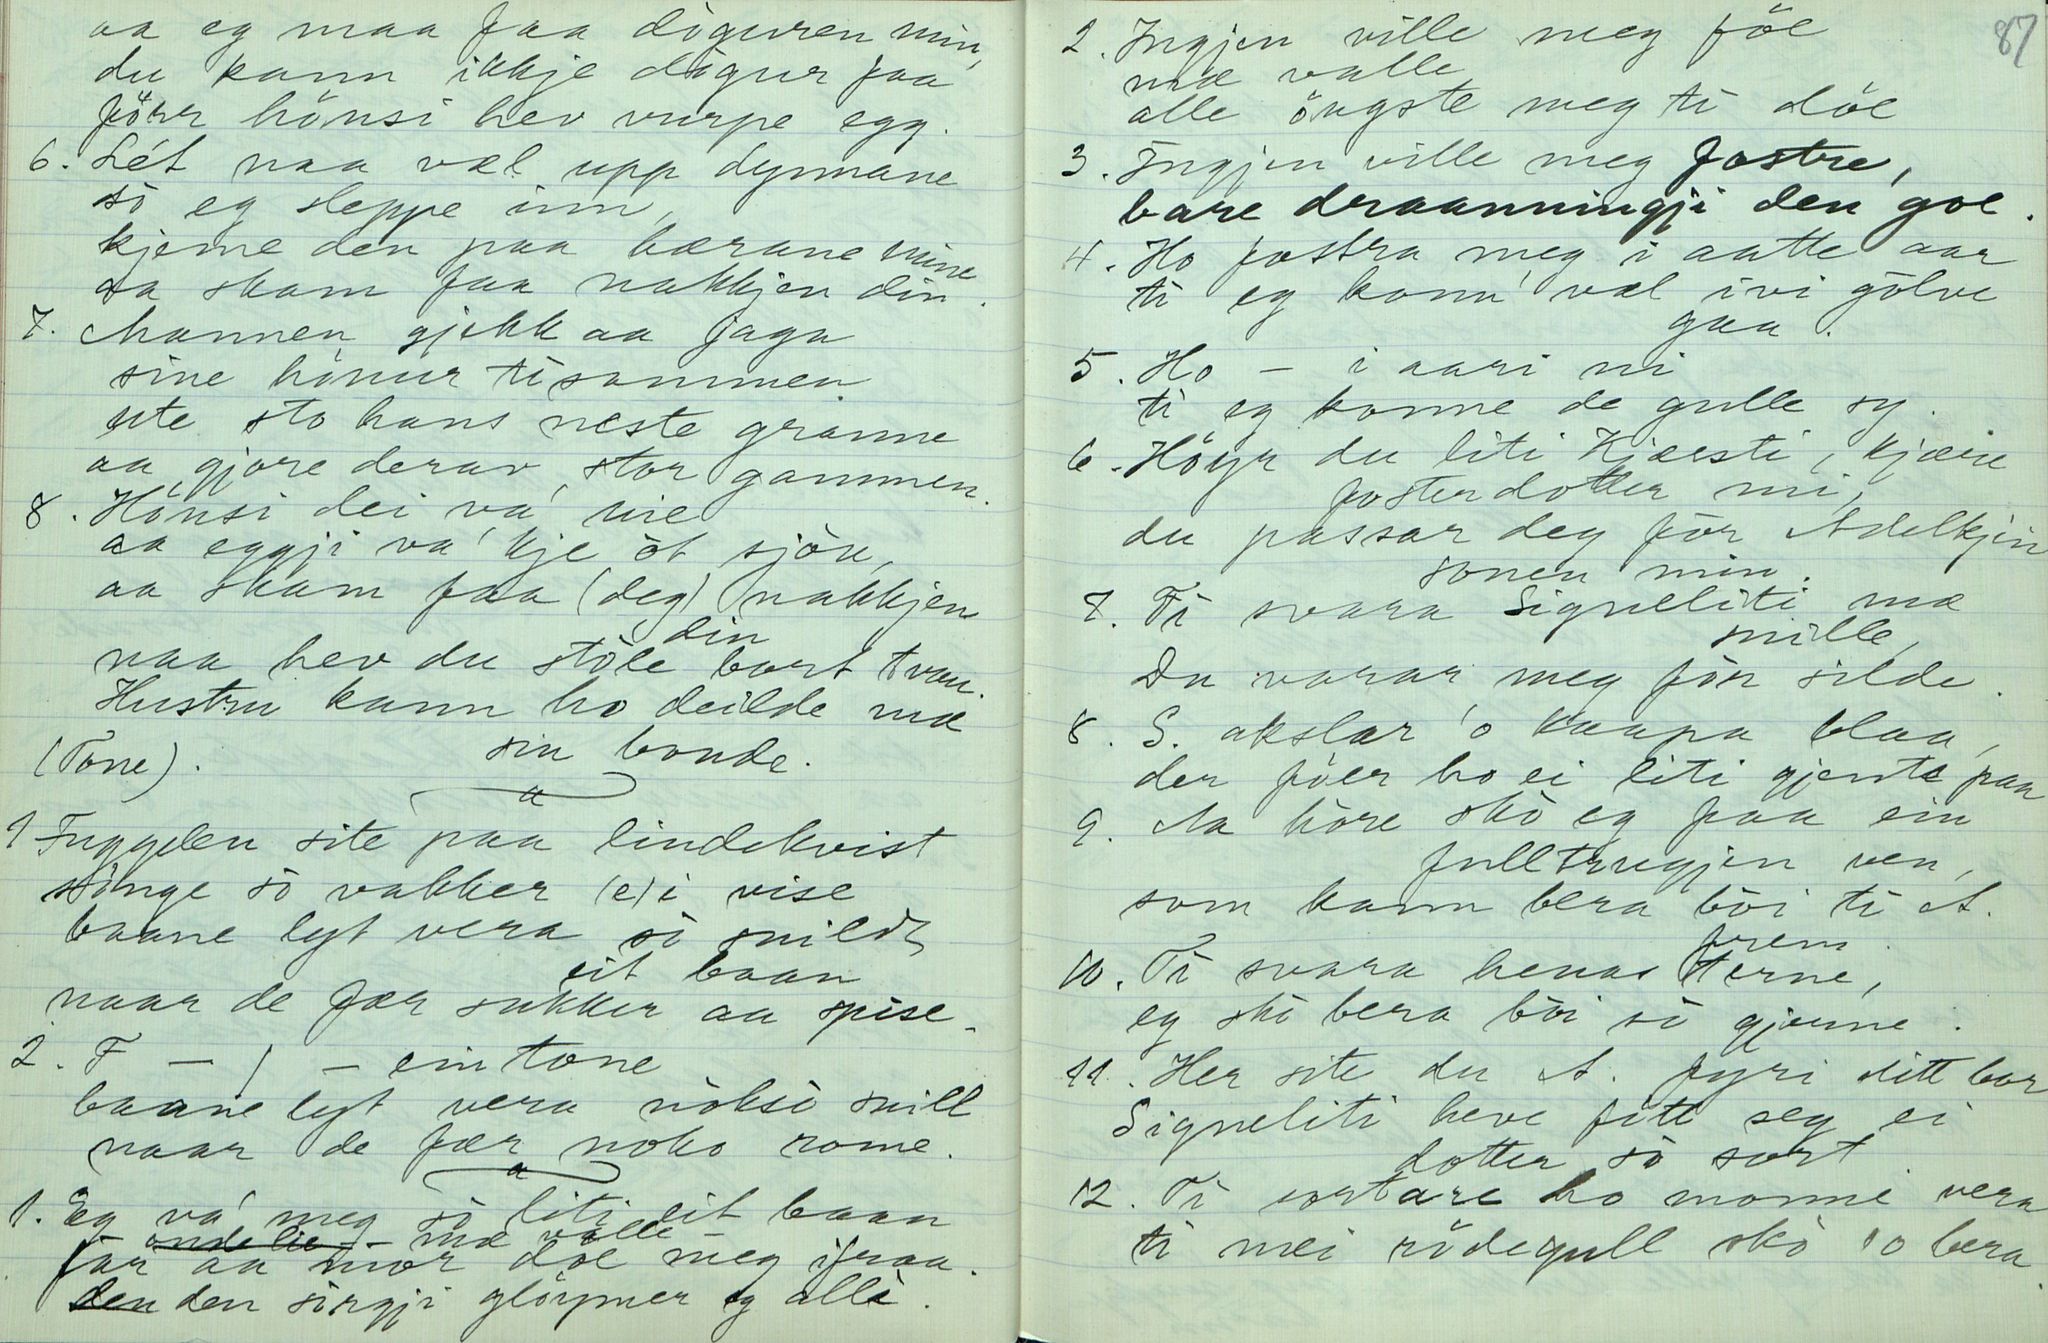 aa eg maa faa diguren min,
du kann ikkje digur faa
förr hönsi hev vurpe egg.
6. Lét naa væl upp dynnane
so eg sleppe inn,
kjeme den paa hærane mine
aa skam faa nakkjen din.
7. Mannen gjekk aa jaga
sine hönur ti sammen
ute sto hans neste granne
aa gjore derav stor gammen.
8. Hönsi dei va'
aa eggji va' kje öt sjön,
aa skam faa (deg) nakkjen
din
naa hev du stöle bort tvau.
Hustru kann ho deilde mæ
sin bonde.
(Tone).
1 Fuggelen site paa lindekvist
sönge so vakker (e) i vise
baane lyt vera so snildt
eit baan
naar de fær sukker aa spise.
2. F – | – ein tone
baane lyt vera nökso snill
naar de fær noko rome.
1. Eg va' meg so liti eit baan
mæ valle
far aa mor döe meg ifraa.
den sörgji glöymer eg alli.
87
2. Ingjen ville meg föe
mæ valle
alle öngste meg ti döe
3. Ingjen ville meg fostre,
bare draanningji den goe.
4. Ho fostra meg i aatte aar
ti eg konn' væl ivi gölve
gaa.
5. Ho – i aari ni
ti eg konne de gulle sy.
6. Höyr du liti Kjersti, kjære
fosterdotter mi,
du passar deg för Adelkjin
sonen min.
7. Ti svara Signeliti mæ
snille,
Du varar meg för silde.
8. S. akslar 'o kaapa blaa,
der föer ho ei liti gjente paa
9. Aa höre sko eg faa ein
fulltrugjen ven,
som kann bera böi ti A.
frem.
10. Ti svara henas terne,
eg sko bera böi so gjerne.
11. Her site du A. fyri ditt bor
Signeliti heve fitt seg ei
dotter so sort.
12. Ti sortare ho monne vera
ti mei rödegull sko 'o bera.